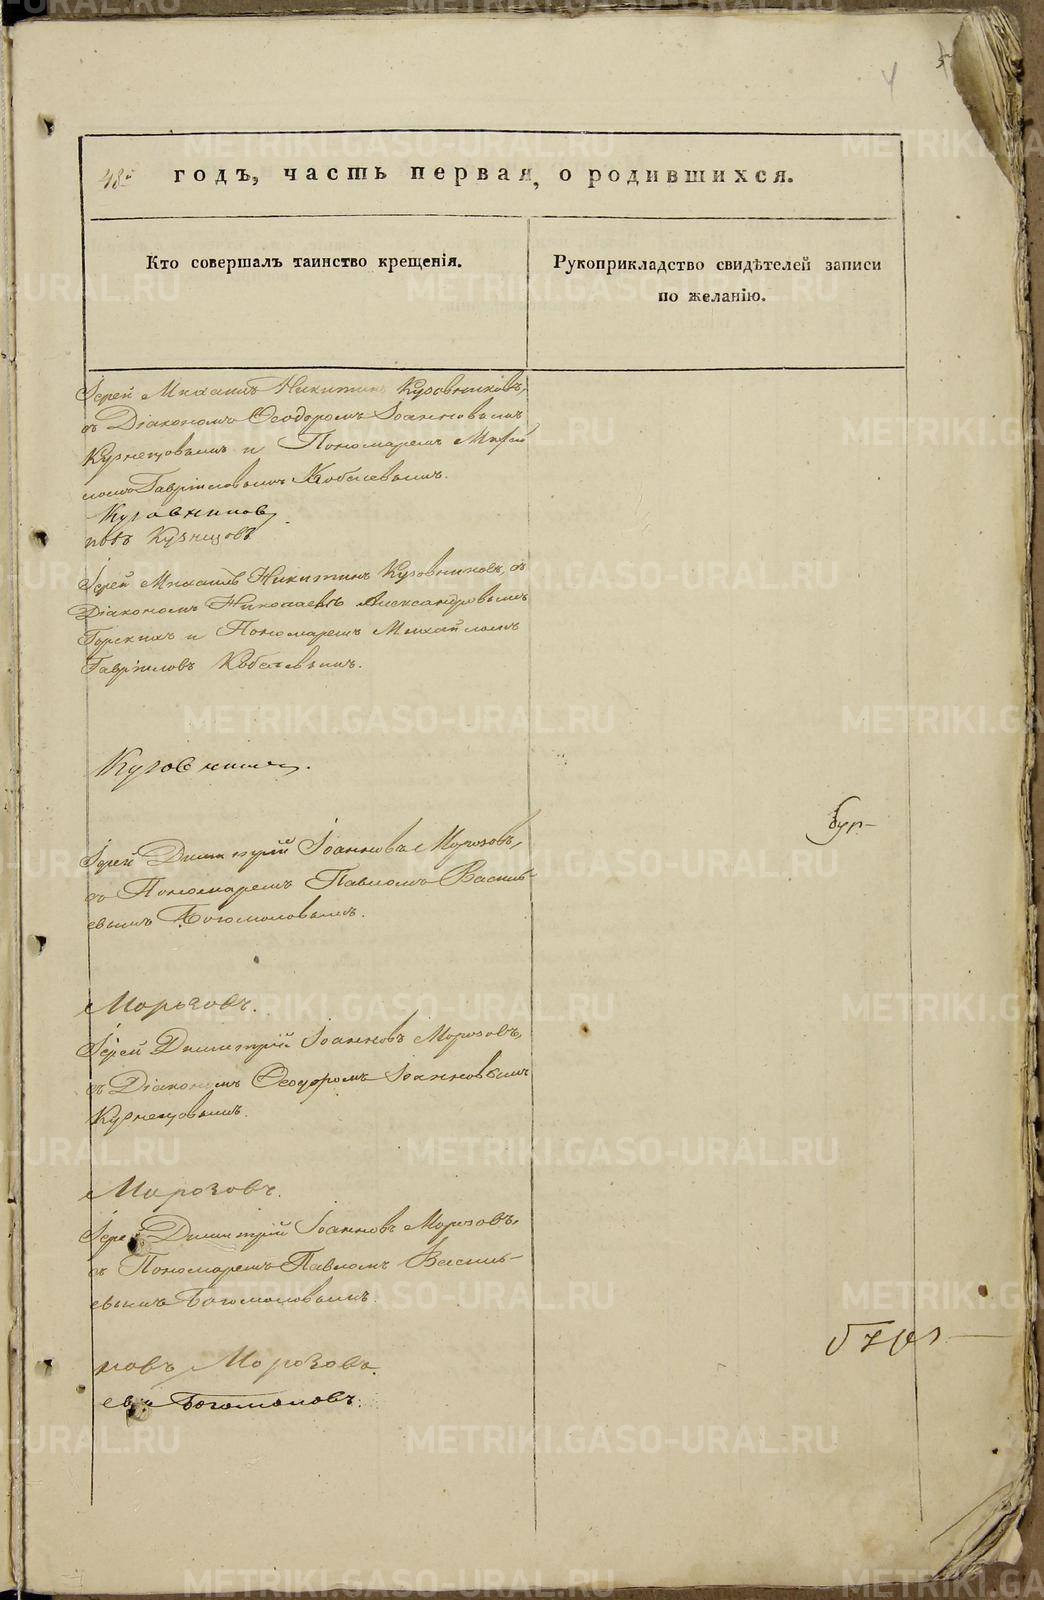 5
48й годъ, часть первая, о родившихся.
Кто совершалъ таинство крещенія.
Рукоприкладство свидѣтелей записи
по желанію.
Іерей Михаилъ Никитинъ Кузовниковъ,
съ Діакономъ Ѳеодоромъ Іоанновымъ
Кузнецовымъ и Пономаремъ Михай
ломъ Гавріиловымъ Кобелевымъ.
Кузовниковъ
новъ Кузнецовъ
Іерей Михаилъ Никитинъ Кузовниковъ, съ
Діакономъ Николаемъ Александровымъ
Горскихъ и Пономаремъ Михайломъ
Гавріиловъ Кобелевымъ.
Кузовниковъ.
Іерей Димитрій Іоанновъ Морозовъ,
съ Пономаремъ Павломъ Василь-
евымъ Богомоловымъ.
Морозовъ.
Іерей Димитрій Іоанновъ Морозовъ,
съ Діакономъ Ѳеодоромъ Іоанновымъ
Кузнецовымъ.
Морозовъ.
Іерей Димитрій Іоанновъ Морозовъ,
съ Пономаремъ Павломъ Василь-
евымъ Богомоловымъ.
новъ Морозовъ.
евъ Богомоловъ.
METRIKI.GASO-URAL.RU